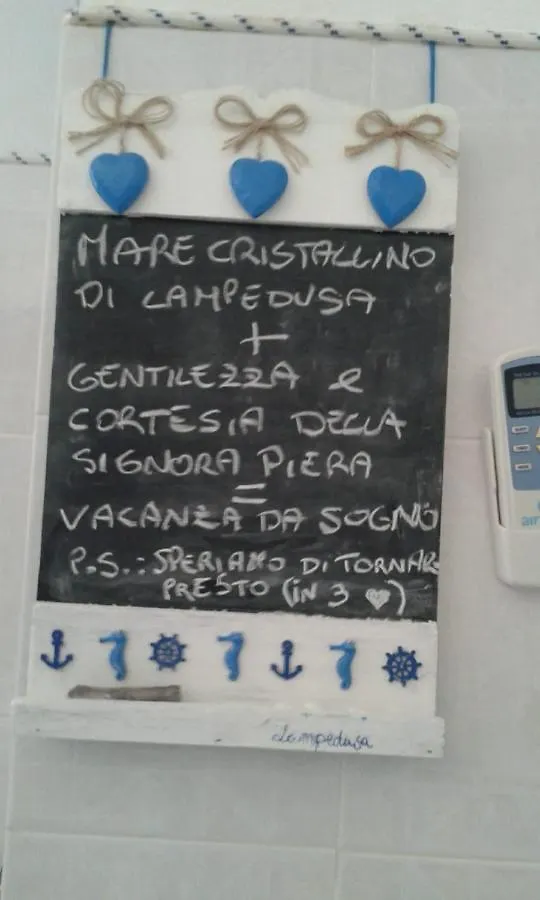 MARE CRISTALLINO
DI LAMPEDUSA
+
GENTILEZZA e
CORTESIA DELLA
SIGNORA PIERA
=
VACANZA DA SOGNO
P.S.: SPERIAMO DI TORNAR
PRESTO (IN 3 ♥)
Lampedusa